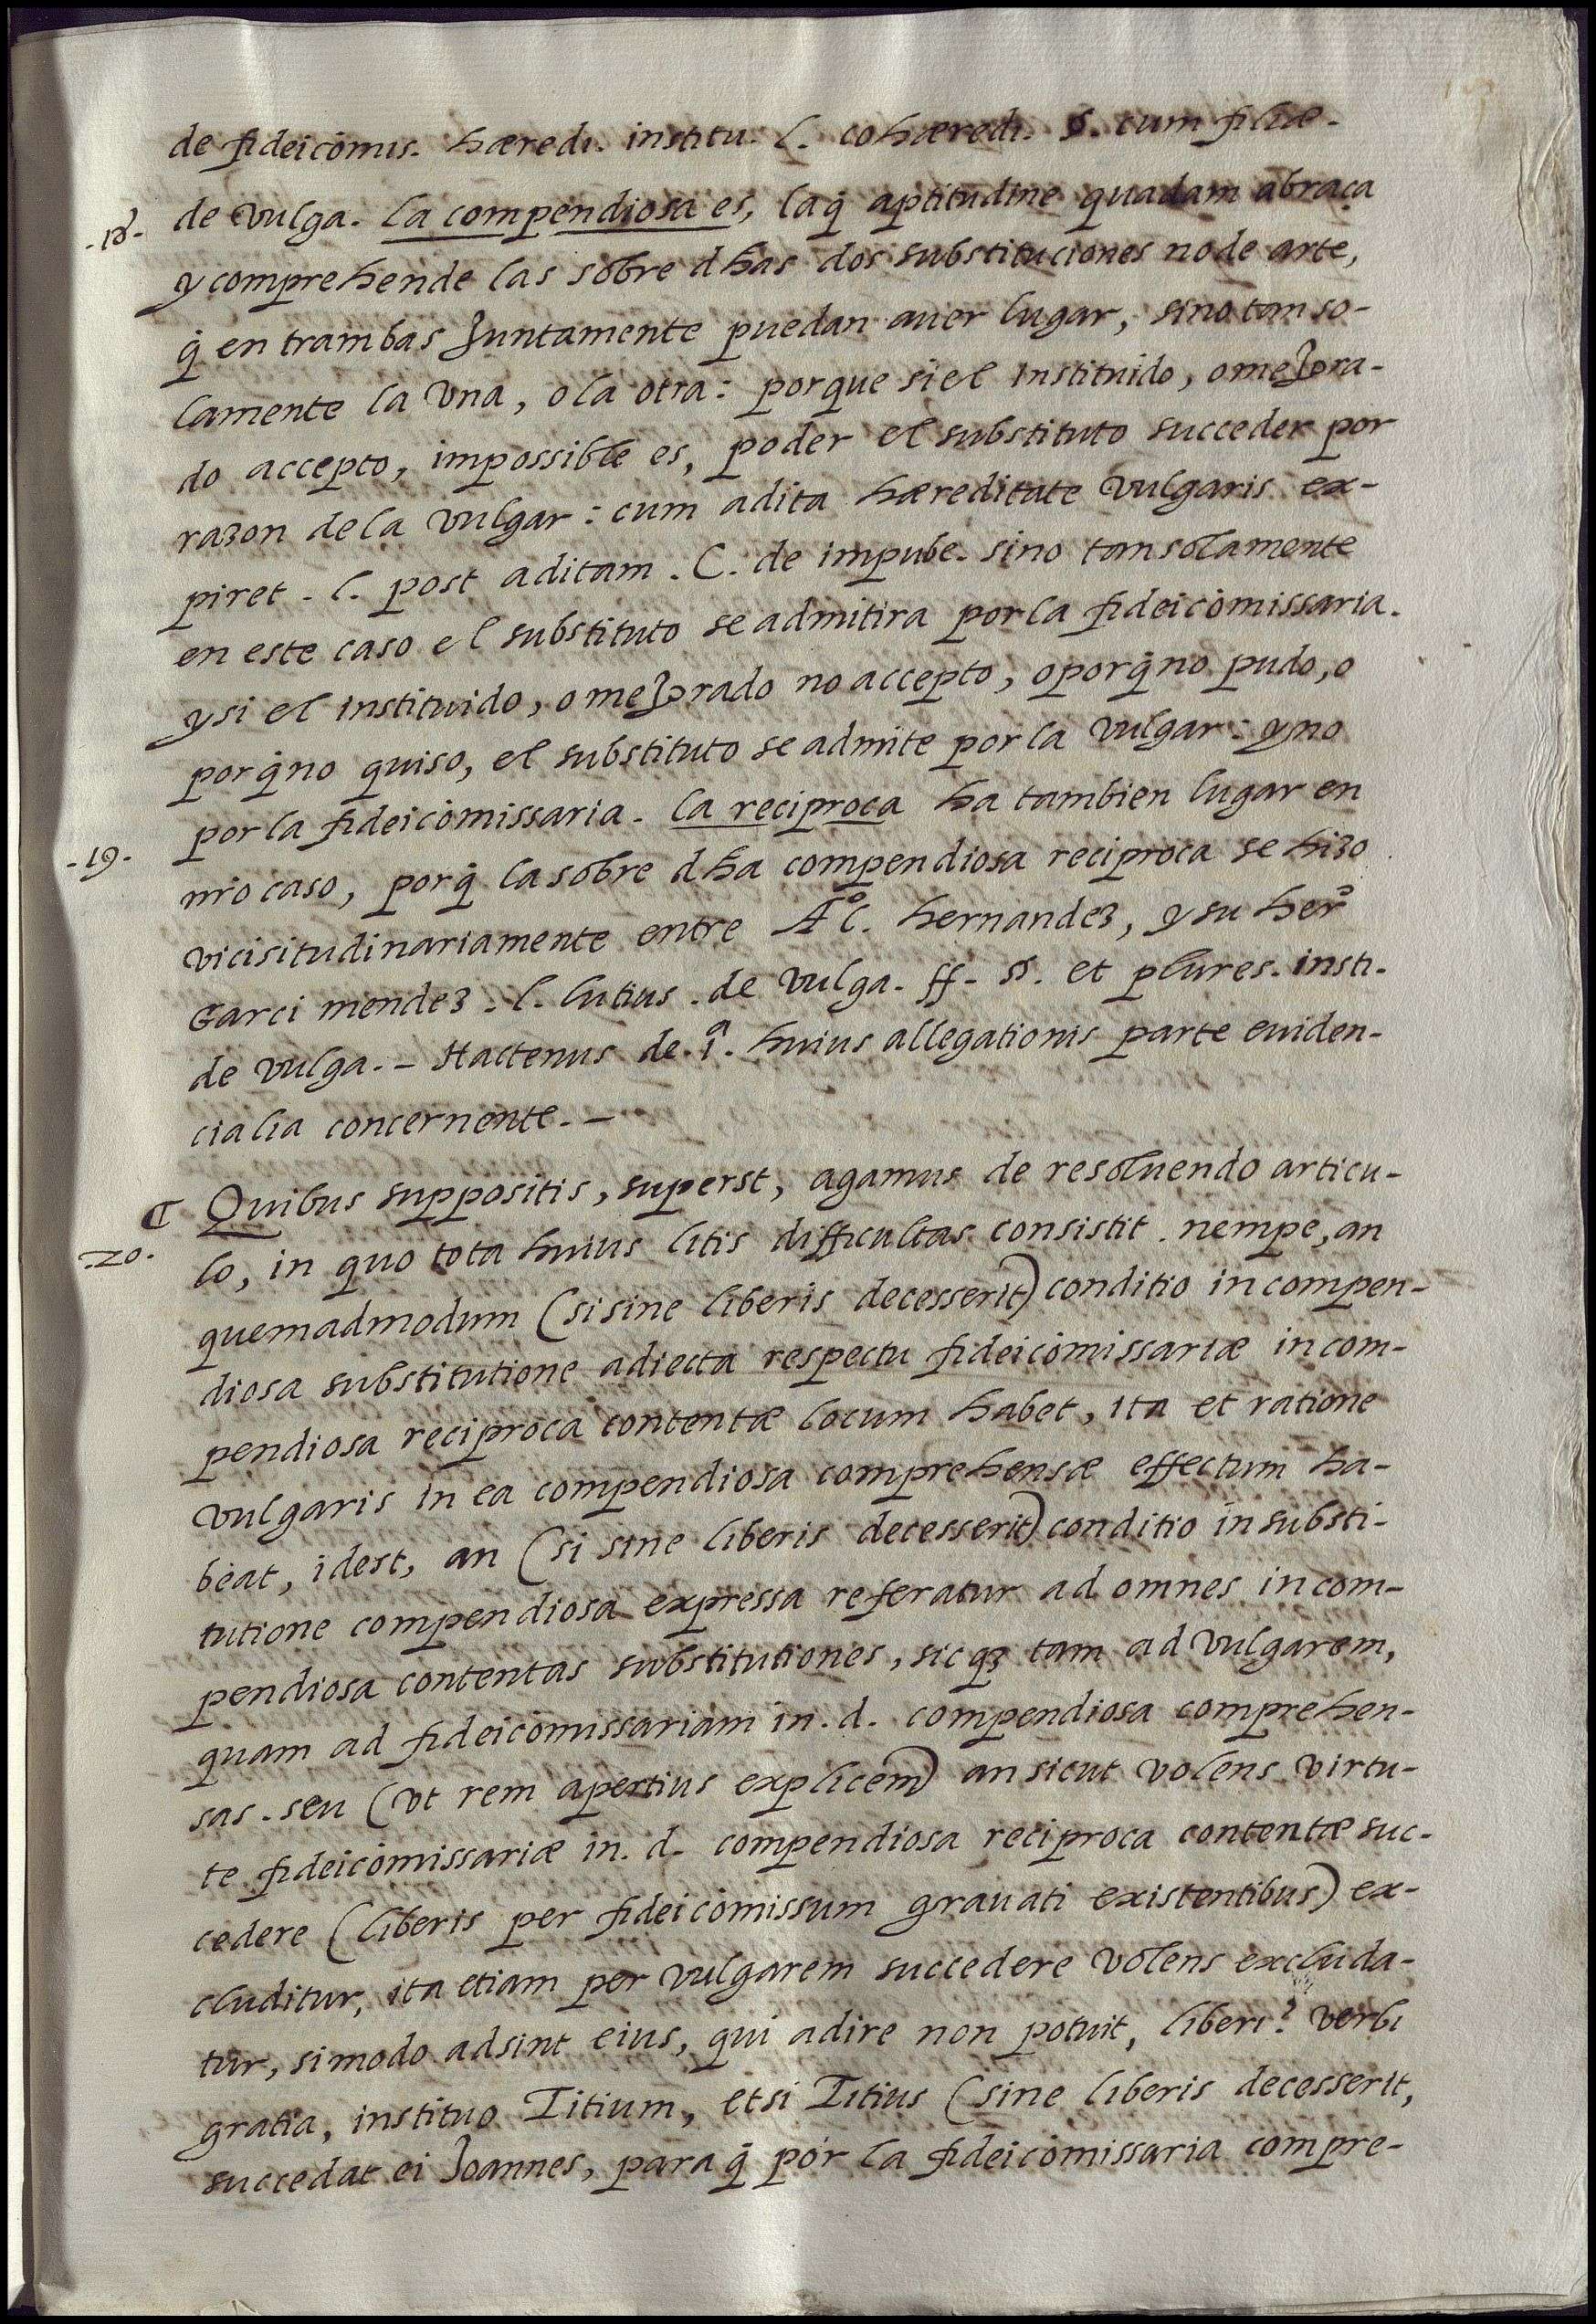 de fideicõmis. hæredi. institu. l. cohæredi. §. cum filiæ.
-18- de vulga. la compendiosa es, la q̃ aptitudine quadam abraça
y comprehende las sobre dhas dos substituciones no de arte,
q̃ en trambas Juntamente puedan auer lugar, sino tan so-
lamente la vna, o la otra: porque si el instituido, o meJora-
do accepto, impossible es, poder el substituto succeder por
razon de la vulgar: cum adita hæreditate vulgaris ex-
piret. l. post aditam. C. de impube. sino tan solamente
en este caso el substituto se admitira por la fideicõmissaria.
y si el instituido, o meJorado no accepto, o porq̃ no pudo, o
porq̃ no quiso, el substituto se admite por la vulgar: y no
por la fideicõmissaria. la reciproca ha tambien lugar en
-19- nr̃o caso, porq̃ la sobre dha compendiosa reciproca se hizo
vicisitudinariamente entre Aº C. hernandez, y su herº
Garci mendez. l. lutius. de vulga. ff. §. et plures. insti.
de vulga. - Hactenus de .1ª. huius allegationis parte euiden-
cialia concernente. -
¶ Quibus suppositis, superst, agamus de resoluendo articu-
-20- lo, in quo tota huius litis difficultas consistit. nempe, an
quemadmodum (si sine liberis decesserit) conditio in compen-
diosa substitutione adiecta respectu fideicõmissariæ in com-
pendiosa reciproca contentæ locum habet, ita et ratione
vulgaris in ea compendiosa comprehensæ effectum ha-
beat, idest, an (si sine liberis decesserit) conditio in substi-
tutione compendiosa expressa referatur ad omnes in com-
pendiosa contentas substitutiones, sicqȝ tam ad vulgarem,
quam ad fideicõmissariam in .d. compendiosa comprehen-
sas. seu (vt rem apertius explicem) an sicut volens virtu-
te fideicõmissariæ in .d. compendiosa reciproca contentæ suc-
cedere (liberis per fideicõmissum grauati existentibus) ex-
cluditur, ita etiam per vulgarem succedere volens excluda-
tur, si modo adsint eius, qui adire non potuit, liberi? verbi
gratia, instituo Titium, et si Titius (sine liberis decesserit,
succedat ei Joannes, para q̃ por la fideicõmissaria compre-